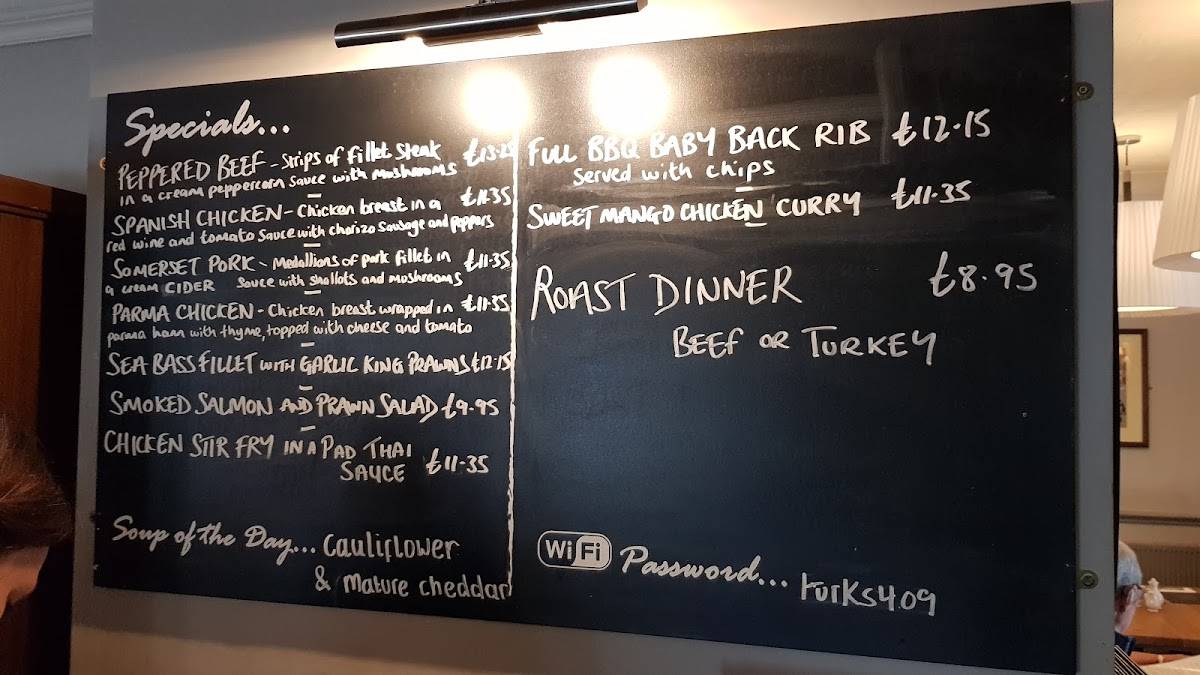 Specials...
PEPPERED BEEF - Strips of fillet steak £13.25
in a cream peppercorn sauce with mushrooms
SPANISH CHICKEN - Chicken breast in a £11.35
red wine and tomato sauce with chorizo sausage and peppers
SOMERSET PORK - Medallions of pork fillet in £11.35
a cream CIDER sauce with shallots and mushrooms
PARMA CHICKEN - Chicken breast wrapped in £11.35
parma ham with thyme, topped with cheese and tomato
SEA BASS FILLET WITH GARLIC KING PRAWNS £12.15
SMOKED SALMON AND PRAWN SALAD £9.95
CHICKEN STIR FRY IN A PAD THAI
SAUCE £11.35
Soup of the Day... Cauliflower
& Mature cheddar
FULL BBQ BABY BACK RIB £12.15
Served with chips
SWEET MANGO CHICKEN CURRY £11.35
ROAST DINNER £8.95
BEEF OR TURKEY
WiFi Password... turks409